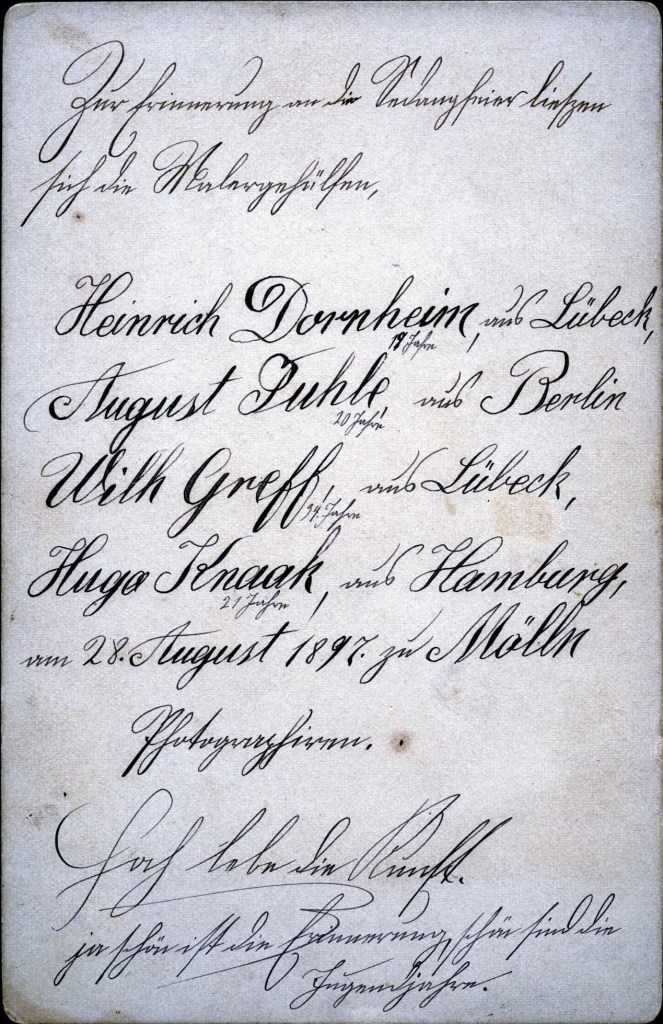 Zur Erinnerung an die Sedangfeier lieszen
sich die Malergehülfen,
Heinrich Dornheim, aus Lübeck,
19 Jahre
August Fuhle, aus Berlin
20 Jahre
Wilh Greff, aus Lübeck,
34. Jahre
Hugo Knaak, aus Hamburg,
21 Jahre
am 28. August 1897. zu Mölln
Photographiren.
Hoch lebe die Kunst.
ja schön ist die Erinnerung, schön sind die
Jugendjahre.